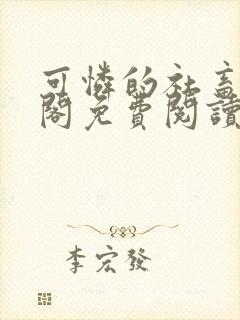 可憐的社畜
閣免費閱讀
李宏發